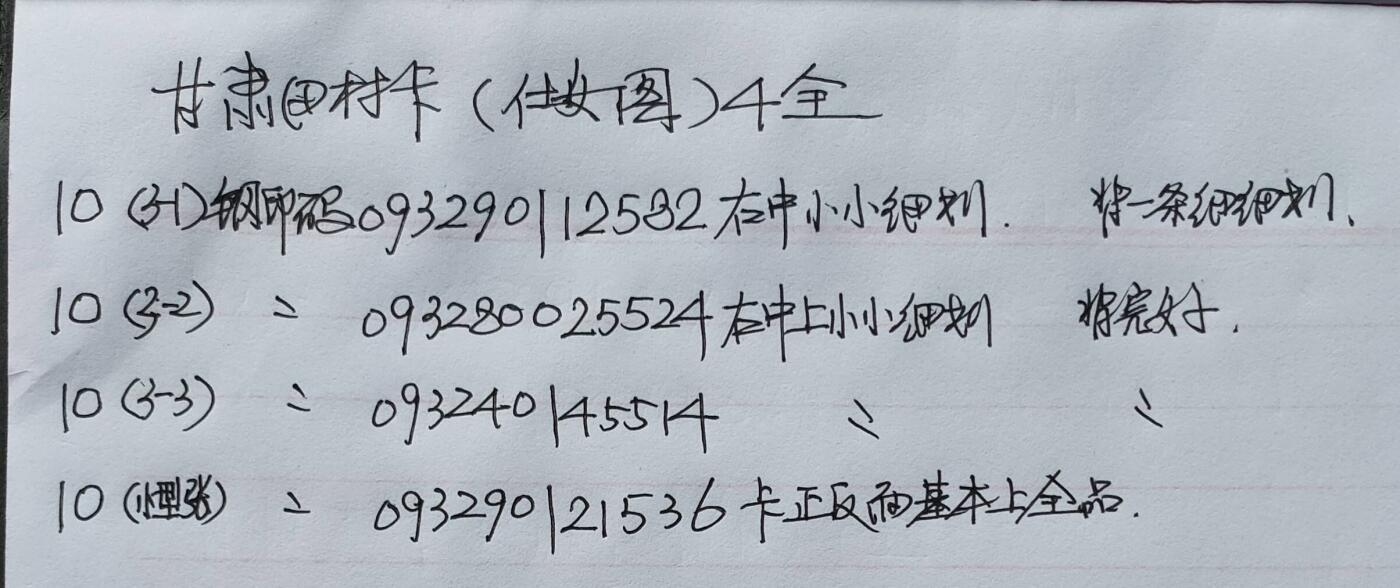 甘肃田村卡(仕女图)4全
10 (3-1) 钢印码 093290112532 右中小小细划. 背一条细细划、
10 (3-2) 〃 093280025524 右中上小小细划 背完好.
10 (3-3) 〃 093240145514 〃 〃
10 (小型张) 〃 093290121536 卡正反面基本上全品.